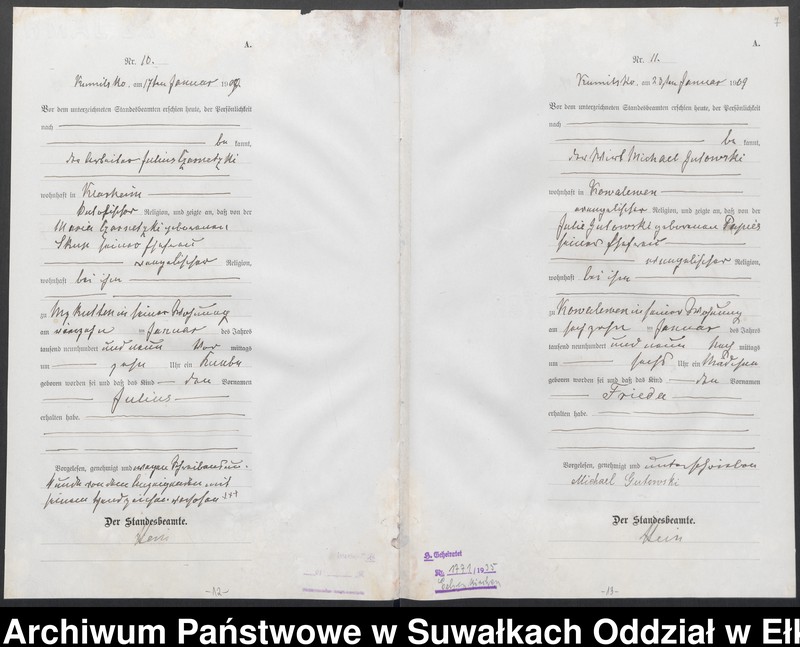 A.
Nr. 10.
Kumilsko, am 17ten Januar 1909
Vor dem unterzeichneten Standesbeamten erschien heute, der Persönlichkeit
nach
be kannt,
der Arbeiter Julius Czarnetzki
wohnhaft in Klarheim
katolischer Religion, und zeigte an, daß von der
Maria Czarnetzki geborenen
seiner Ehefrau
evangelischer Religion,
wohnhaft bei ihm
zu in seiner Wohnung
am vierzehn ten Januar des Jahres
tausend neunhundert und neun Vor mittags
um zehn Uhr ein Knabe
geboren worden sei und daß das Kind den Vornamen
Julius
erhalten habe.
Vorgelesen, genehmigt und wegen Schreibensun-
kunde von dem Anzeigenden mit
seinem Handzeichen versehen +++
Der Standesbeamte.
Hein
-12-
7
A.
Nr. 11.
Kumilsko, am 23ten Januar 1909
Vor dem unterzeichneten Standesbeamten erschien heute, der Persönlichkeit
nach
be kannt,
der Wirt Michael Gutowski
wohnhaft in Kowalewen
evangelischer Religion, und zeigte an, daß von der
Julie Gutowski geborenen
seiner Ehefrau
evangelischer Religion,
wohnhaft bei ihm
zu Kowalewen in seiner Wohnung
am sechzehn ten Januar des Jahres
tausend neunhundert und neun Nach mittags
um sechs Uhr ein Mädchen
geboren worden sei und daß das Kind den Vornamen
Frieda
erhalten habe.
Vorgelesen, genehmigt und unterschrieben
Michael Gutowski
Der Standesbeamte.
Hein
Geheiratet
Nr. 1771/1935
-13-
Archiwum Państwowe w Suwałkach Oddział w Ełk